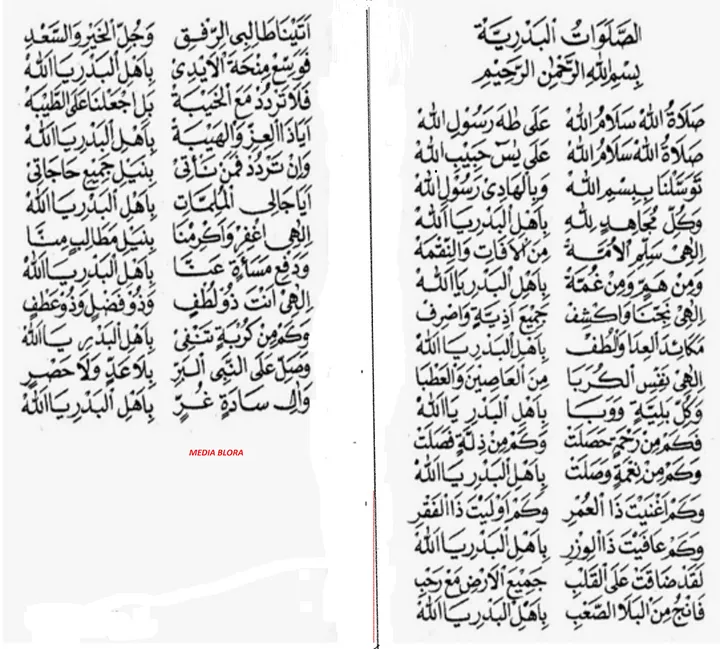 الصَّلَوَاتُ الْبَدْرِيَّةُ
بِسْمِ اللهِ الرَّحْمٰنِ الرَّحِيْمِ
صَلَاةُ اللهْ سَلَامُ اللهْ عَلَى طٰهَ رَسُوْلِ اللهْ
صَلَاةُ اللهْ سَلَامُ اللهْ عَلَى يٰسٓ حَبِيْبِ اللهْ
تَوَسَّلْنَا بِبِسْمِ اللهْ وَبِالْهَادِيْ رَسُوْلِ اللهْ
وَكُلِّ مُجَاهِدٍ لِلّٰهْ بِاَهْلِ الْبَدْرِ يَا اَللهْ
اِلٰهِيْ سَلِّمِ الْاُمَّةْ مِنَ الْاٰفَاتِ وَالنِّقْمَةْ
وَمِنْ هَمٍّ وَمِنْ غُمَّةْ بِاَهْلِ الْبَدْرِ يَا اَللهْ
اِلٰهِيْ نَجِّنَا وَاكْشِفْ جَمِيْعَ اَذِيَّةٍ وَاصْرِفْ
مَكَائِدَ الْعِدَا وَالْطُفْ بِاَهْلِ الْبَدْرِ يَا اَللهْ
اِلٰهِيْ نَفِّسِ الْكُرَبَا مِنَ الْعَاصِيْنَ وَالْعَطْبَا
وَكُلِّ بَلِيَّةٍ وَوَبَا بِاَهْلِ الْبَدْرِ يَا اَللهْ
فَكَمْ مِنْ رَحْمَةٍ حَصَلَتْ وَكَمْ مِنْ ذِلَّةٍ فَصَلَتْ
وَكَمْ مِنْ نِعْمَةٍ وَصَلَتْ بِاَهْلِ الْبَدْرِ يَا اَللهْ
وَكَمْ اَغْنَيْتَ ذَا الْعُمْرِ وَكَمْ اَوْلَيْتَ ذَا الْفَقْرِ
وَكَمْ عَافَيْتَ ذَا الْوِزْرِ بِاَهْلِ الْبَدْرِ يَا اَللهْ
لَقَدْ ضَاقَتْ عَلَى الْقَلْبِ جَمِيْعُ الْاَرْضِ مَعْ رَحْبِ
فَانْجِ مِنَ الْبَلَا الصَّعْبِ بِاَهْلِ الْبَدْرِ يَا اَللهْ
اَتَيْنَا طَالِبِى الرِّفْقِ وَجُلِّ الْخَيْرِ وَالسَّعْدِ
فَوَسِّعْ مِنْحَةَ الْاَيْدِيْ بِاَهْلِ الْبَدْرِ يَا اَللهْ
فَلَا تَرْدُدْ مَعَ الْخَيْبَةْ بَلِ اجْعَلْنَا عَلَى الطَّيْبَةْ
اَيَا ذَا الْعِزِّ وَالْهَيْبَةْ بِاَهْلِ الْبَدْرِ يَا اَللهْ
وَاِنْ تَرْدُدْ فَمَنْ نَأْتِيْ بِنَيْلِ جَمِيْعِ حَاجَاتِيْ
اَيَا جَالِى الْمُلِمَّاتِ بِاَهْلِ الْبَدْرِ يَا اَللهْ
اِلٰهِى اغْفِرْ وَاَكْرِمْنَا بِنَيْلِ مَطَالِبٍ مِنَّا
وَدَفْعِ مَسَاءَةٍ عَنَّا بِاَهْلِ الْبَدْرِ يَا اَللهْ
اِلٰهِيْ اَنْتَ ذُوْ لُطْفٍ وَذُوْ فَضْلٍ وَذُوْ عَطْفٍ
وَكَمْ مِنْ كُرْبَةٍ تَنْفِيْ بِاَهْلِ الْبَدْرِ يَا اَللهْ
وَصَلِّ عَلَى النَّبِى الْبَرِّ بِلَا عَدٍّ وَلَا حَصْرٍ
وَاٰلِ سَادَةٍ غُرٍّ بِاَهْلِ الْبَدْرِ يَا اَللهْ
MEDIA BLORA